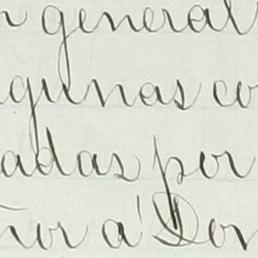 n general
gunas co
adas por
ñor a' Don